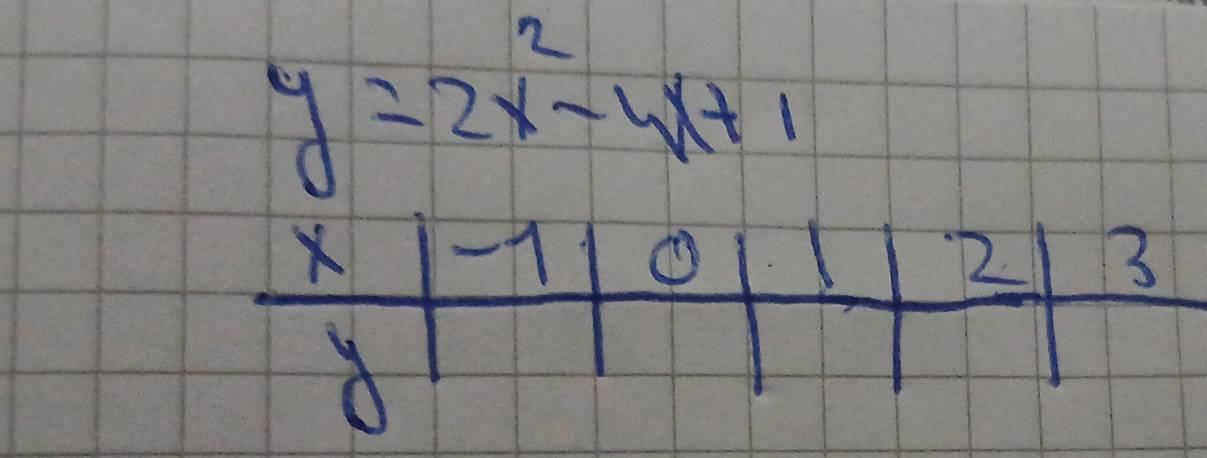 y = 2x² - 4x + 1
x | -1 | 0 | 1 | 2 | 3
y | | | | |